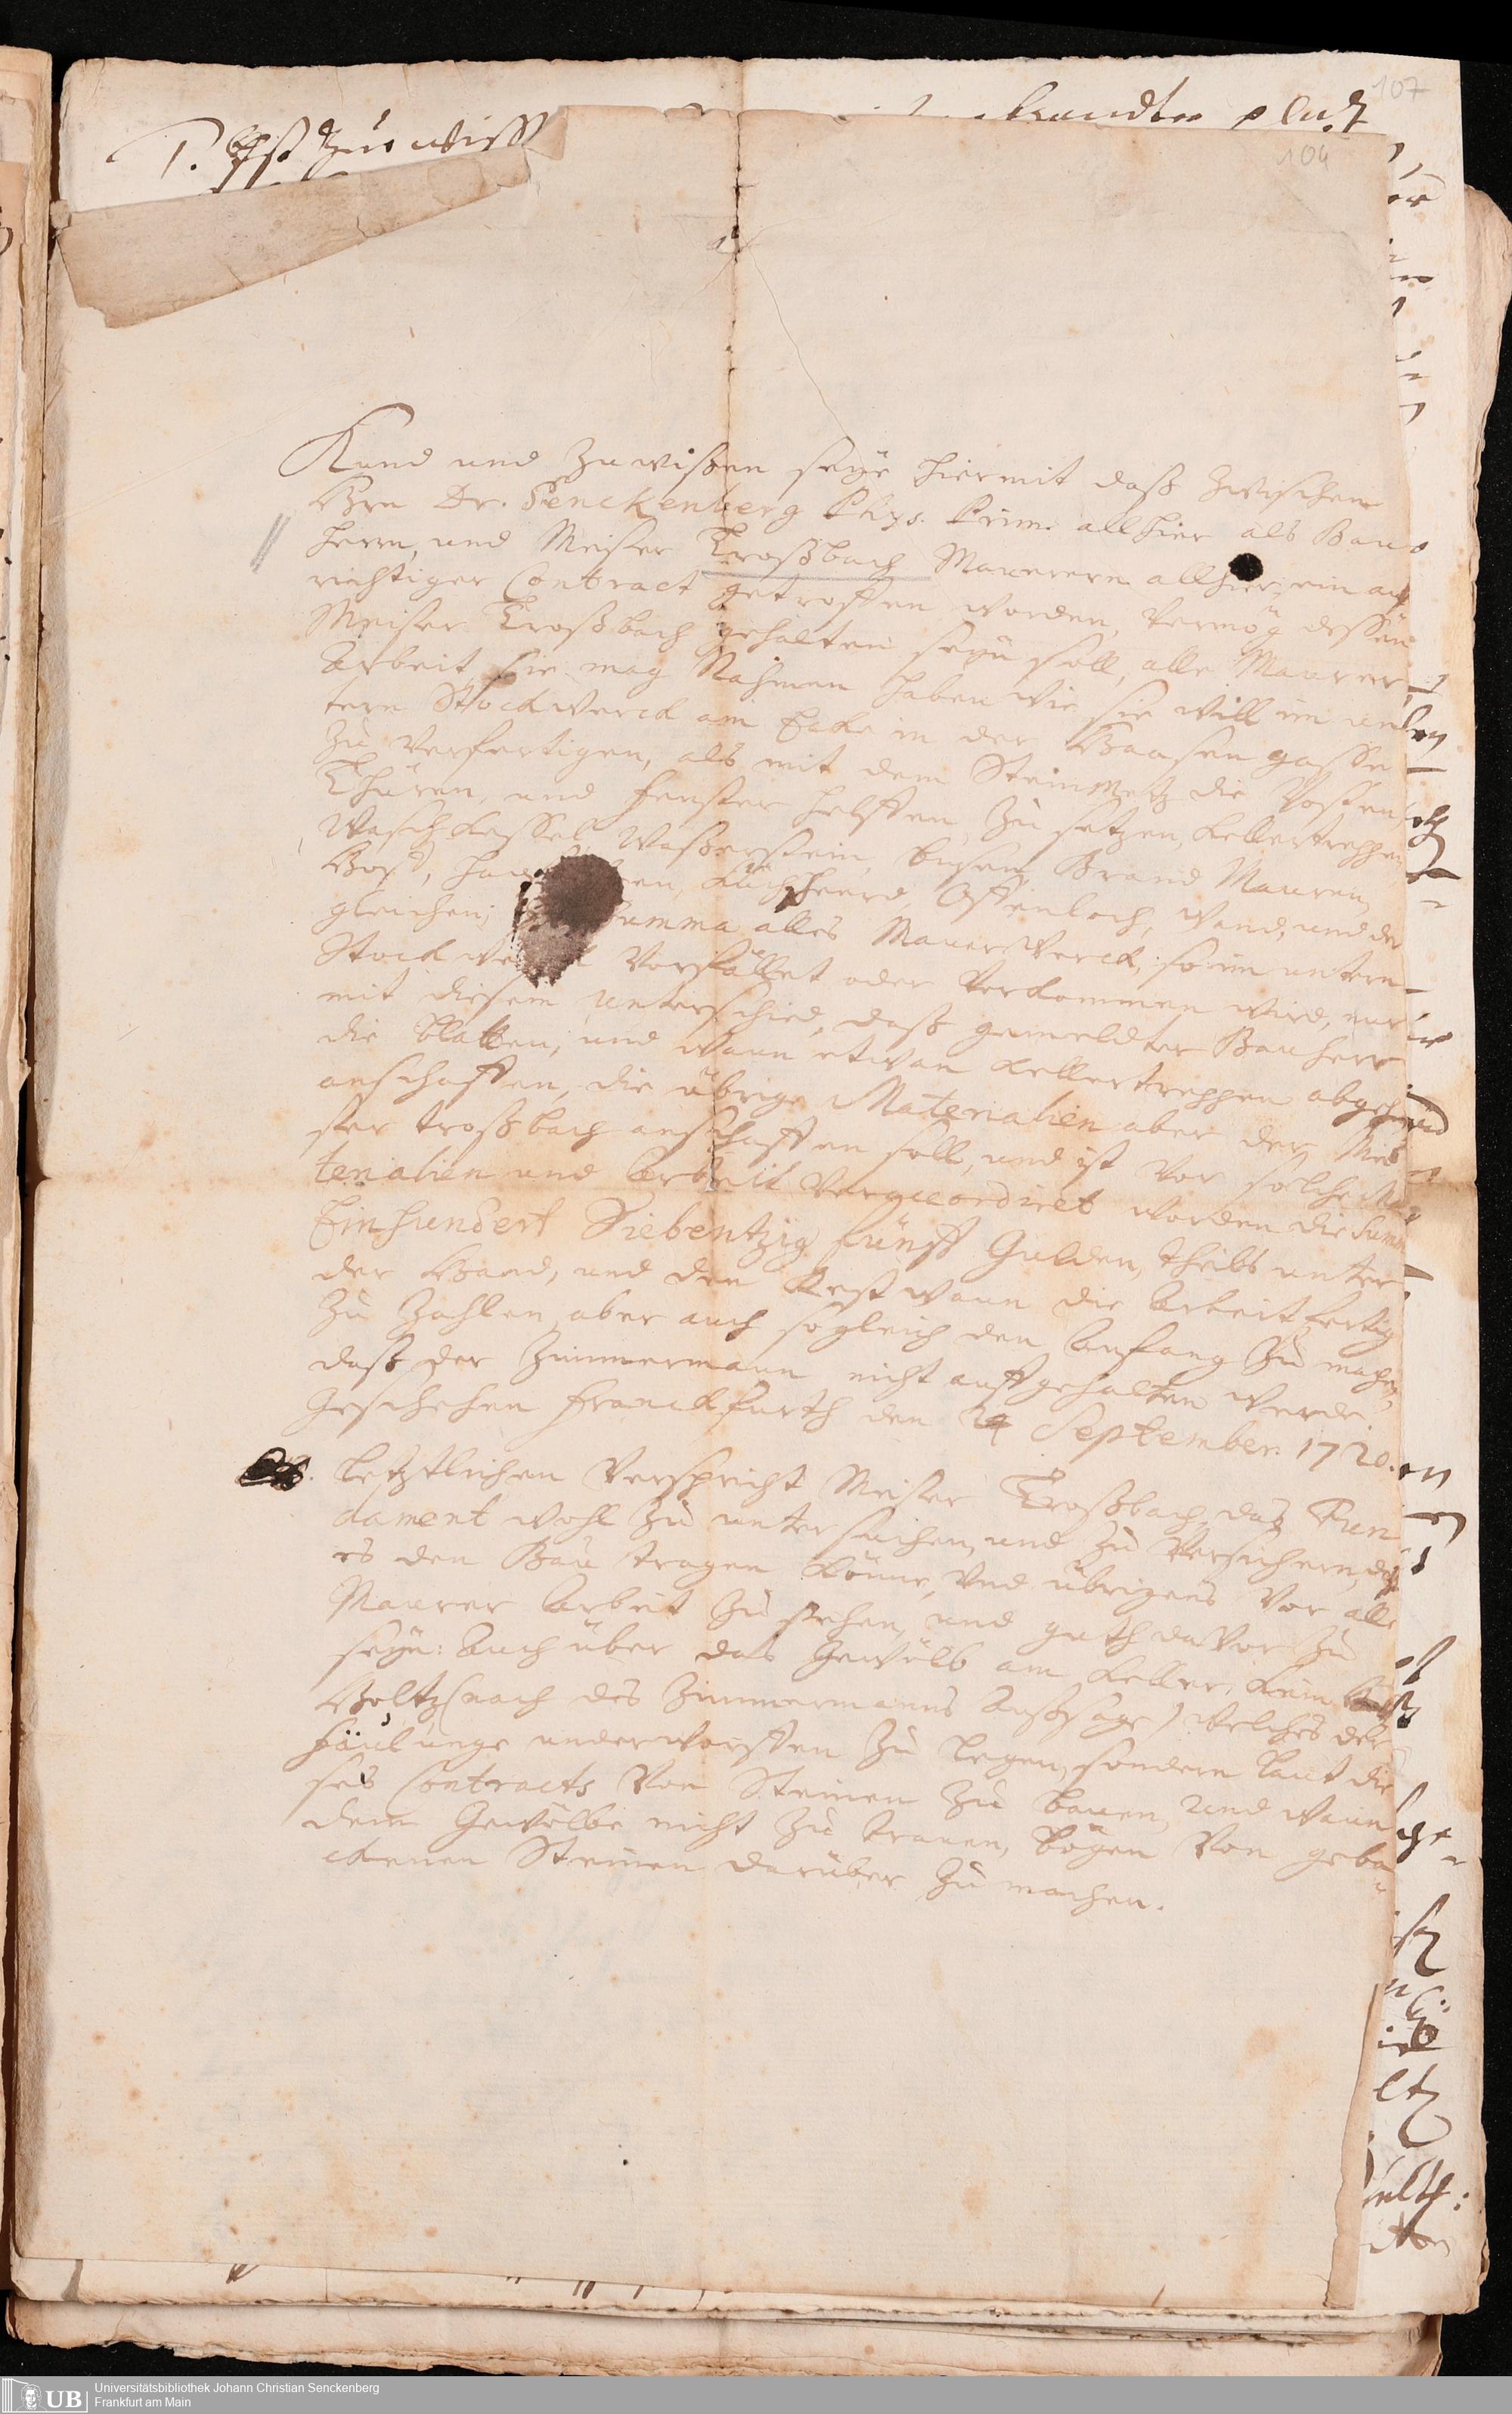 107
104
P. Ist zu wiss
Kund und zu wißen seye hiermit daß zwischen
Hrn Dr. Senckenberg Phys. Prim. allhier als Bau
herrn, und Meister Troßbach Maurern allhier, ein auf
richtiger Contract getroffen worden, vermög dessen
Meister Troßbach gehalten seyn soll, alle Maurer
Arbeit, sie mag Nahmen haben wie sie will im un
tern Stockwerck am Eck in der Haasen gasse
zu verfertigen, als mit dem Steinmetz die Posten,
Thüren, und fenster helffen zu setzen, Kellertreppen
Waschkessel, Wasserstein, busem, Brand Mauren,
Küchheerd, Offenloch, Wand, und der
gleichen, Summa alles Mauerwerck, so im untern
Stockwerck vorfället oder verkommen wird, nur
mit diesem unterschied, daß gemeldter Bauherr
die Platten, und wann etwan Kellertreppen abgehen
anschaffen, die übrige Materialien aber der Mei
ster Troßbach anschaffen soll, und ist vor solche Ma
terialien und Arbeit veraccordiret worden die Summ
Einhundert Siebentzig fünff Gulden, theils unter
der Hand, und den Rest wann die Arbeit fertig
zu zahlen, aber auch sogleich den Anfang zu machen,
daß der Zimmermann nicht auffgehalten werde.
Geschehen Franckfurth den 24 September. 1720.
Letztlichen verspricht Meister Troßbach, das Fun
dament wohl zu untersuchen, und zu versichern, daß
es den Bau tragen könne, und übrigens vor alle
Maurer Arbeit zu stehen, und guth davor zu
seyn: Auch über das Gewölb am Keller, kein
Holtz (nach des Zimmermanns Außsage) welches der
fäulunge underworffen zu legen, sondern laut die
ses Contracts von Steinen zu bauen, und wann
dem Gewölbe nicht zu trauen, bögen von geba
ckenen Steinen darüber zu machen.
UB
Universitätsbibliothek Johann Christian Senckenberg
Frankfurt am Main